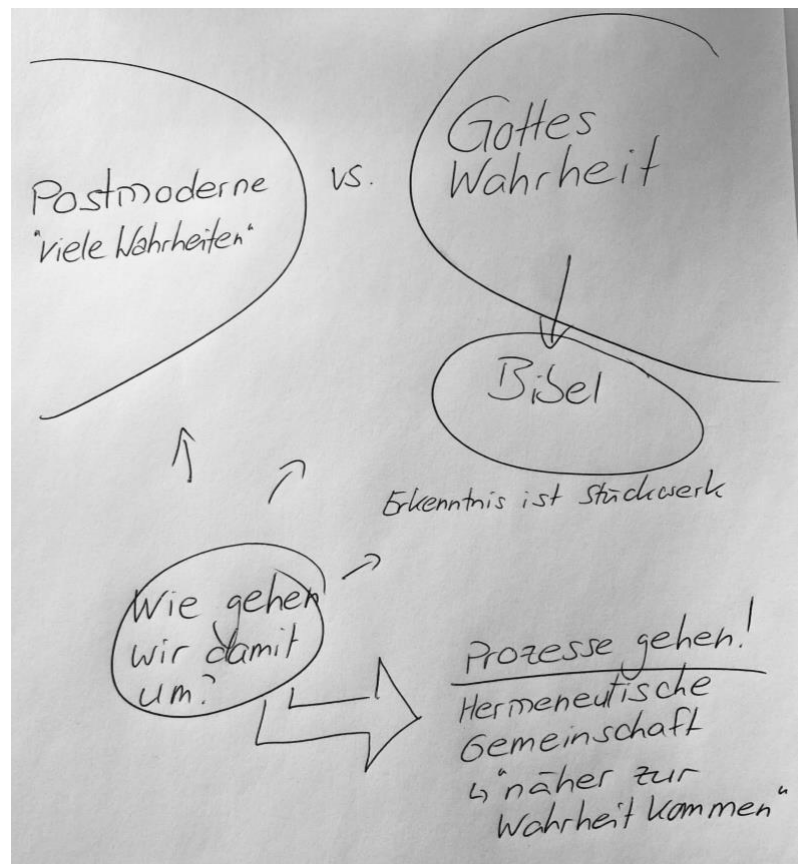 Postmoderne
"viele Wahrheiten"
vs.
Gottes
Wahrheit
Bibel
Erkenntnis ist Stückwerk
Wie gehen
wir damit
um?
Prozesse gehen!
Hermeneutische
Gemeinschaft
↳ "näher zur
Wahrheit kommen"